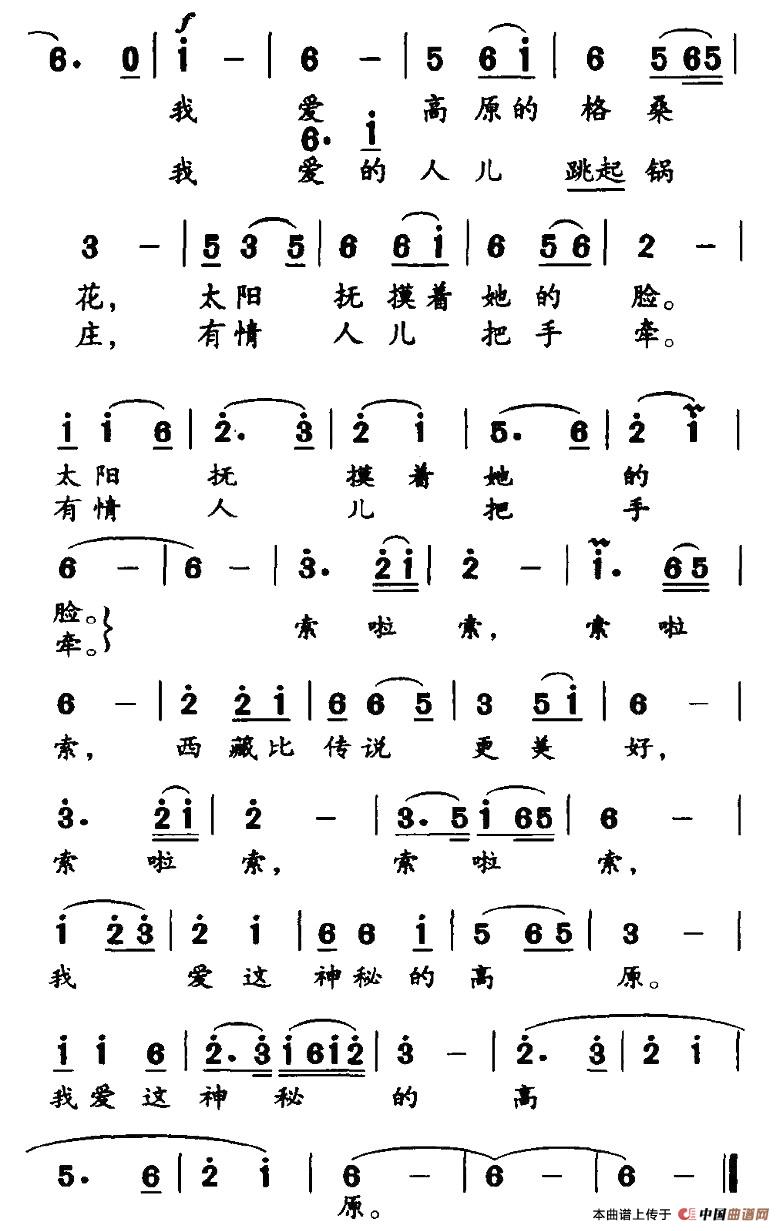 f
6. 0 | i - | 6 - | 5 6 i | 6 5 65 |
我 爱 高原的 格桑
6. i
我 爱的 人儿 跳起锅
3 - | 5 3 5 | 6 6 i | 6 5 6 | 2 - |
花， 太阳 抚摸着她的 脸。
庄， 有情 人儿 把手 牵。
i i 6 | 2. 3 | 2 i | 5. 6 | 2 i |
太阳 抚 摸着她 的
有情 人 儿 把 手
6 - | 6 - | 3. 2i | 2 - | i. 65 |
脸。} 索 啦 索， 索 啦
牵。
6 - | 2 2 i | 6 6 5 | 3 5 i | 6 - |
索， 西藏比传说 更美 好，
3. 2i | 2 - | 3. 5 i 65 | 6 - |
索 啦 索， 索 啦 索，
i 2 3 | 2 i | 6 6 i | 5 6 5 | 3 - |
我 爱这神秘的高 原。
i i 6 | 2. 3 i6i2 | 3 - | 2. 3 | 2 i |
我爱这神 秘 的 高
5. 6 | 2 i | 6 - | 6 - | 6 - ‖
原。
本曲谱上传于 中国曲谱网